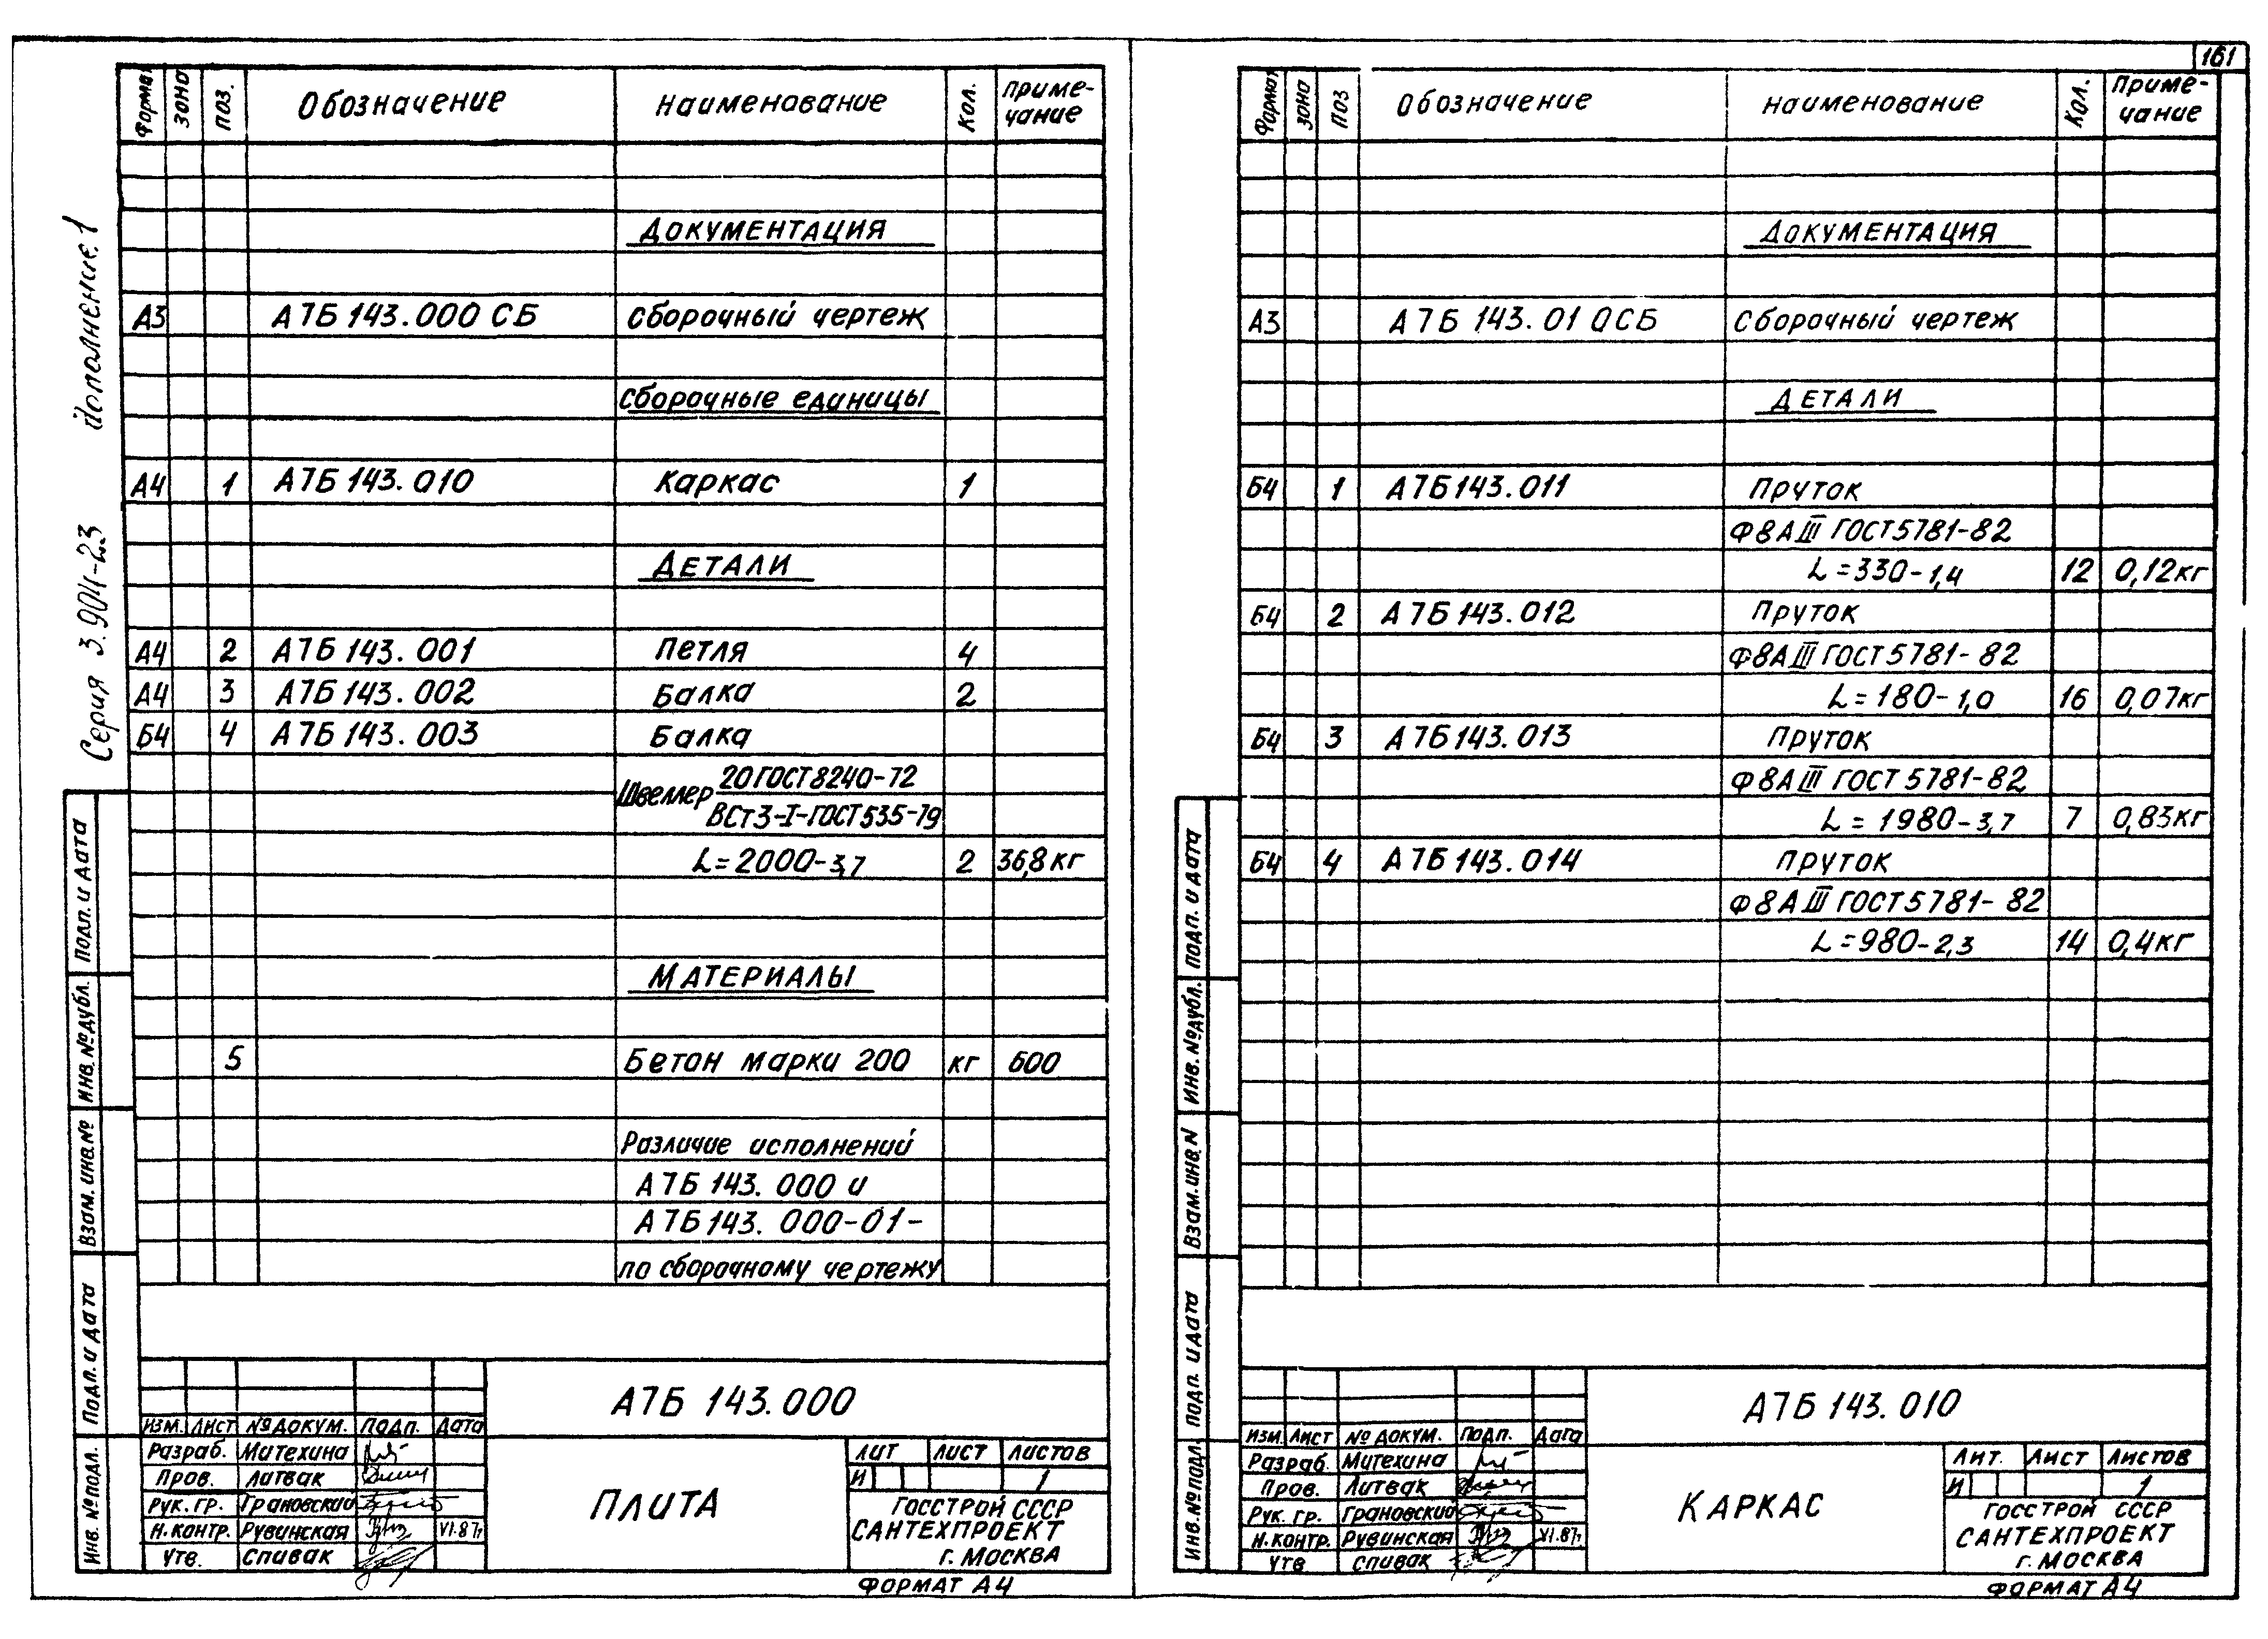 161
Серия 3.904-23 Дополнение 1
Формат Зона Поз. Обозначение Наименование Кол. Приме-
чание
ДОКУМЕНТАЦИЯ
А3 А7Б 143.000 СБ Сборочный чертеж
Сборочные единицы
А4 1 А7Б 143.010 Каркас 1
ДЕТАЛИ
А4 2 А7Б 143.001 Петля 4
А4 3 А7Б 143.002 Балка 2
Б4 4 А7Б 143.003 Балка
Швеллер 20 ГОСТ 8240-72
ВСт3-I-ГОСТ 535-79
L=2000-3,7 2 36,8 кг
МАТЕРИАЛЫ
5 Бетон марки 200 кг 600
Различие исполнений
А7Б 143.000 и
А7Б 143.000-01-
по сборочному чертежу
Инв. № подл. Подп. и дата Взам. инв. № Инв. № дубл. Подп. и дата
А7Б 143.000
Изм. Лист № докум. Подп. Дата
Разраб. Митехина
Пров. Литвак
Рук. гр. Грановский
Н. контр. Рувинская VI.87г
Утв. Спивак
ПЛИТА
Лит Лист Листов
И 1
ГОССТРОЙ СССР
САНТЕХПРОЕКТ
г. МОСКВА
ФОРМАТ А4
Формат Зона Поз Обозначение Наименование Кол. Приме-
чание
ДОКУМЕНТАЦИЯ
А3 А7Б 143.010СБ Сборочный чертеж
ДЕТАЛИ
Б4 1 А7Б 143.011 Пруток
Ф8АIII ГОСТ 5781-82
L=330-1,4 12 0,12кг
Б4 2 А7Б 143.012 Пруток
Ф8АIII ГОСТ 5781-82
L=180-1,0 16 0,07кг
Б4 3 А7Б 143.013 Пруток
Ф8АIII ГОСТ 5781-82
L=1980-3,7 7 0,83кг
Б4 4 А7Б 143.014 Пруток
Ф8АIII ГОСТ 5781-82
L=980-2,3 14 0,4кг
Инв. № подл. Подп. и дата Взам. инв. N Инв. № дубл. Подп. и дата
А7Б 143.010
Изм. Лист № докум. Подп. Дата
Разраб. Митехина
Пров. Литвак
Рук. гр. Грановский
Н. контр. Рувинская VI.87г.
Утв Спивак
КАРКАС
Лит. Лист Листов
И 1
ГОССТРОЙ СССР
САНТЕХПРОЕКТ
г. МОСКВА
ФОРМАТ А4